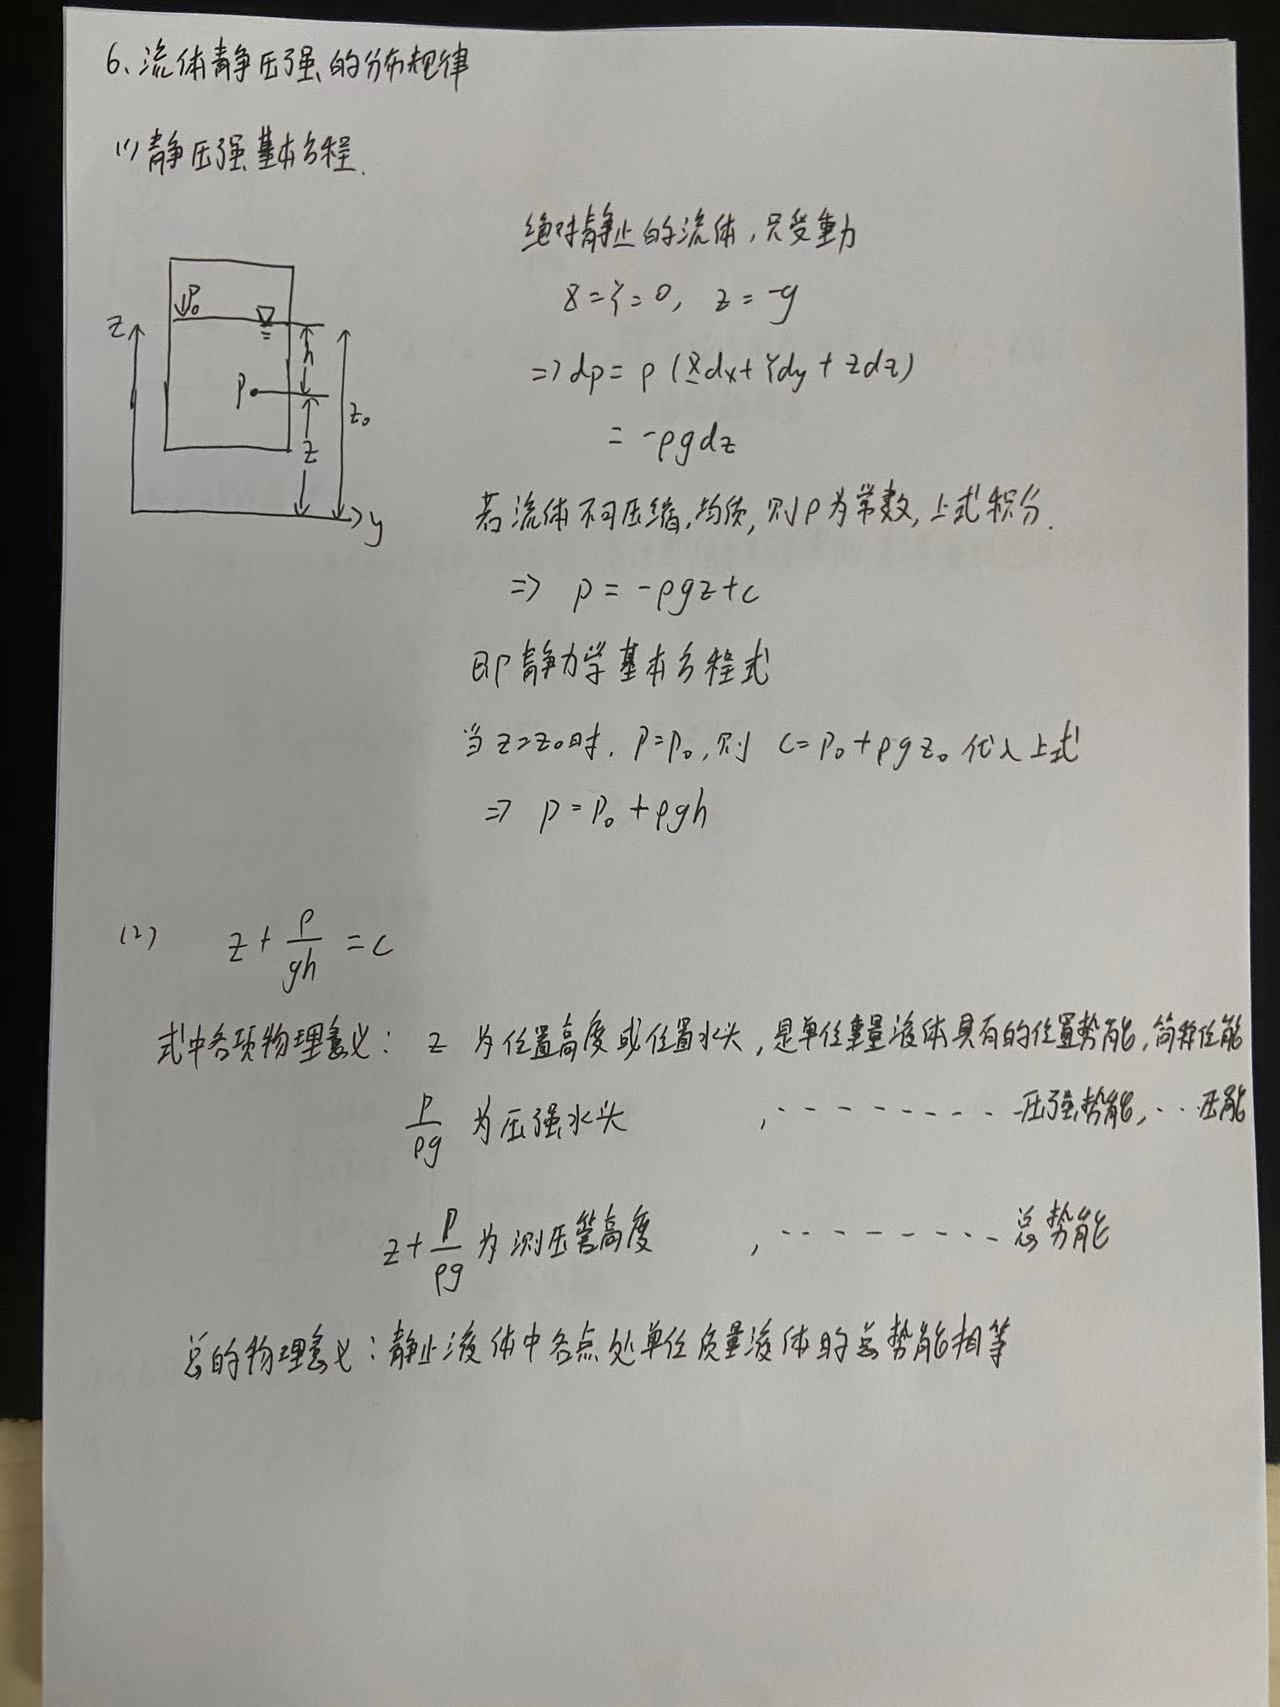 6、流体静压强的分布规律
(1) 静压强基本方程.
绝对静止的流体，只受重力
X=Y=0, z=-g
=> dp= ρ (Xdx+Ydy+zdz)
= -ρgdz
若流体不可压缩，均质，则ρ为常数，上式积分.
=> p = -ρgz+c
即静力学基本方程式
当z=z₀时. P=P₀，则 c=P₀+ρgz₀ 代入上式
=> p = P₀ + ρgh
P₀
z
h
P
z₀
z
y
(2) z + P/gh = c
式中各项物理意义: z 为位置高度或位置水头，是单位重量液体具有的位置势能，简称位能
P/ρg 为压强水头 , - - - - - - - - 压强势能，·· 压能
z+P/ρg 为测压管高度 , - - - - - - - - 总势能
总的物理意义: 静止液体中各点处单位质量液体的总势能相等